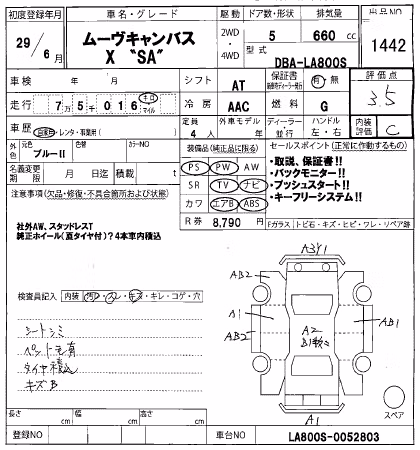 初度登録年月 車名・グレード 駆動 ドア数・形状 排気量 出品NO
29/6月 ムーヴキャンバス X "SA" 2WD・4WD 5 660cc 1442
型式 DBA-LA800S
車検 年 月 シフト AT 保証書 有・無 評価点 3.5
走行 7万5千016 キロ マイル 冷房 AAC 燃料 G
車歴 自家用・レンタ・事業用( ) 定員 4人 外車モデル 年 ディーラー・並行 ハンドル 左・右 内装評価 C
外色 元色 ブルーII 色替 カラーNO
装備品(純正品に限る) セールスポイント(正常に作動するもの)
名義変更期限 月 日 積載 t
PS PW AW
SR TV ナビ
カワ エアB ABS
R券 8,790円
・取説、保証書!!
・バックモニター!!
・プッシュスタート!!
・キーフリーシステム!!
注意事項(欠品・修復・不具合箇所および状態)
社外AW、スタッドレスT
純正ホイール(夏タイヤ付)?4本車内積込
Fガラス トビ石・キズ・ヒビ・ワレ・リペア跡
検査員記入 内装 汚レ・スレ・キズ・キレ・コゲ・穴
シートシミ
ペット毛有
タイヤ積込
キズB
A3Y1
AB2 AB2
A1 AB1
AB2 A2
A1
スペア
長さ cm 幅 cm 高さ cm
登録NO 車台NO LA800S-0052803